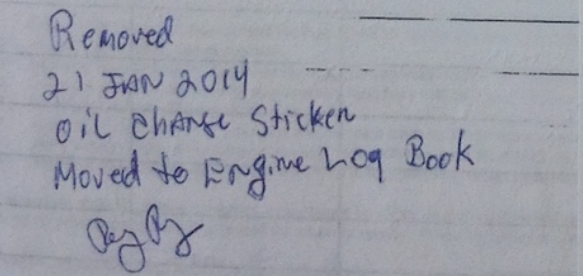 Removed
21 JAN 2014
Oil Change Sticker
Moved to Engine Log Book